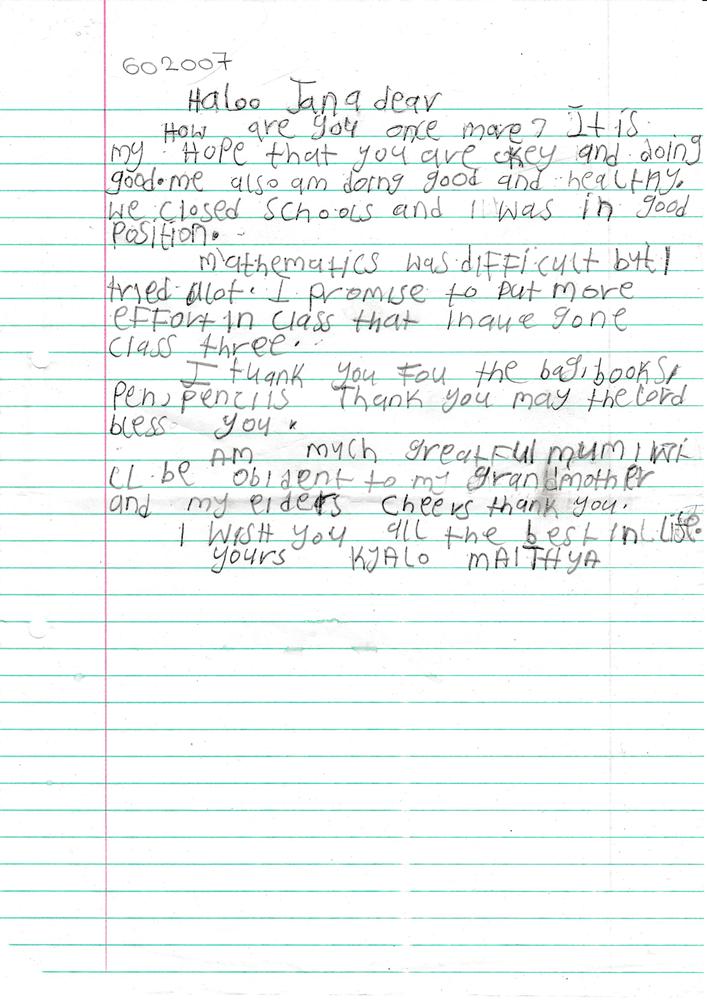 602007
Haloo Jana dear
How are you once more? It is
my Hope that you are okey and doing
good. me also am doing good and healthy.
we closed schools and I was in good
Position.
Mathematics was difficult but I
tried alot. I promise to put more
effort in class that inave gone
class three.
I thank you Fou the bag, books,
Pen, pencils Thank you may the lord
bless you.
AM much greatful mum I wi
ll be obident to my grandmother
and my elders Cheers thank you.
I wish you all the best in life.
yours KYALO MAITHYA